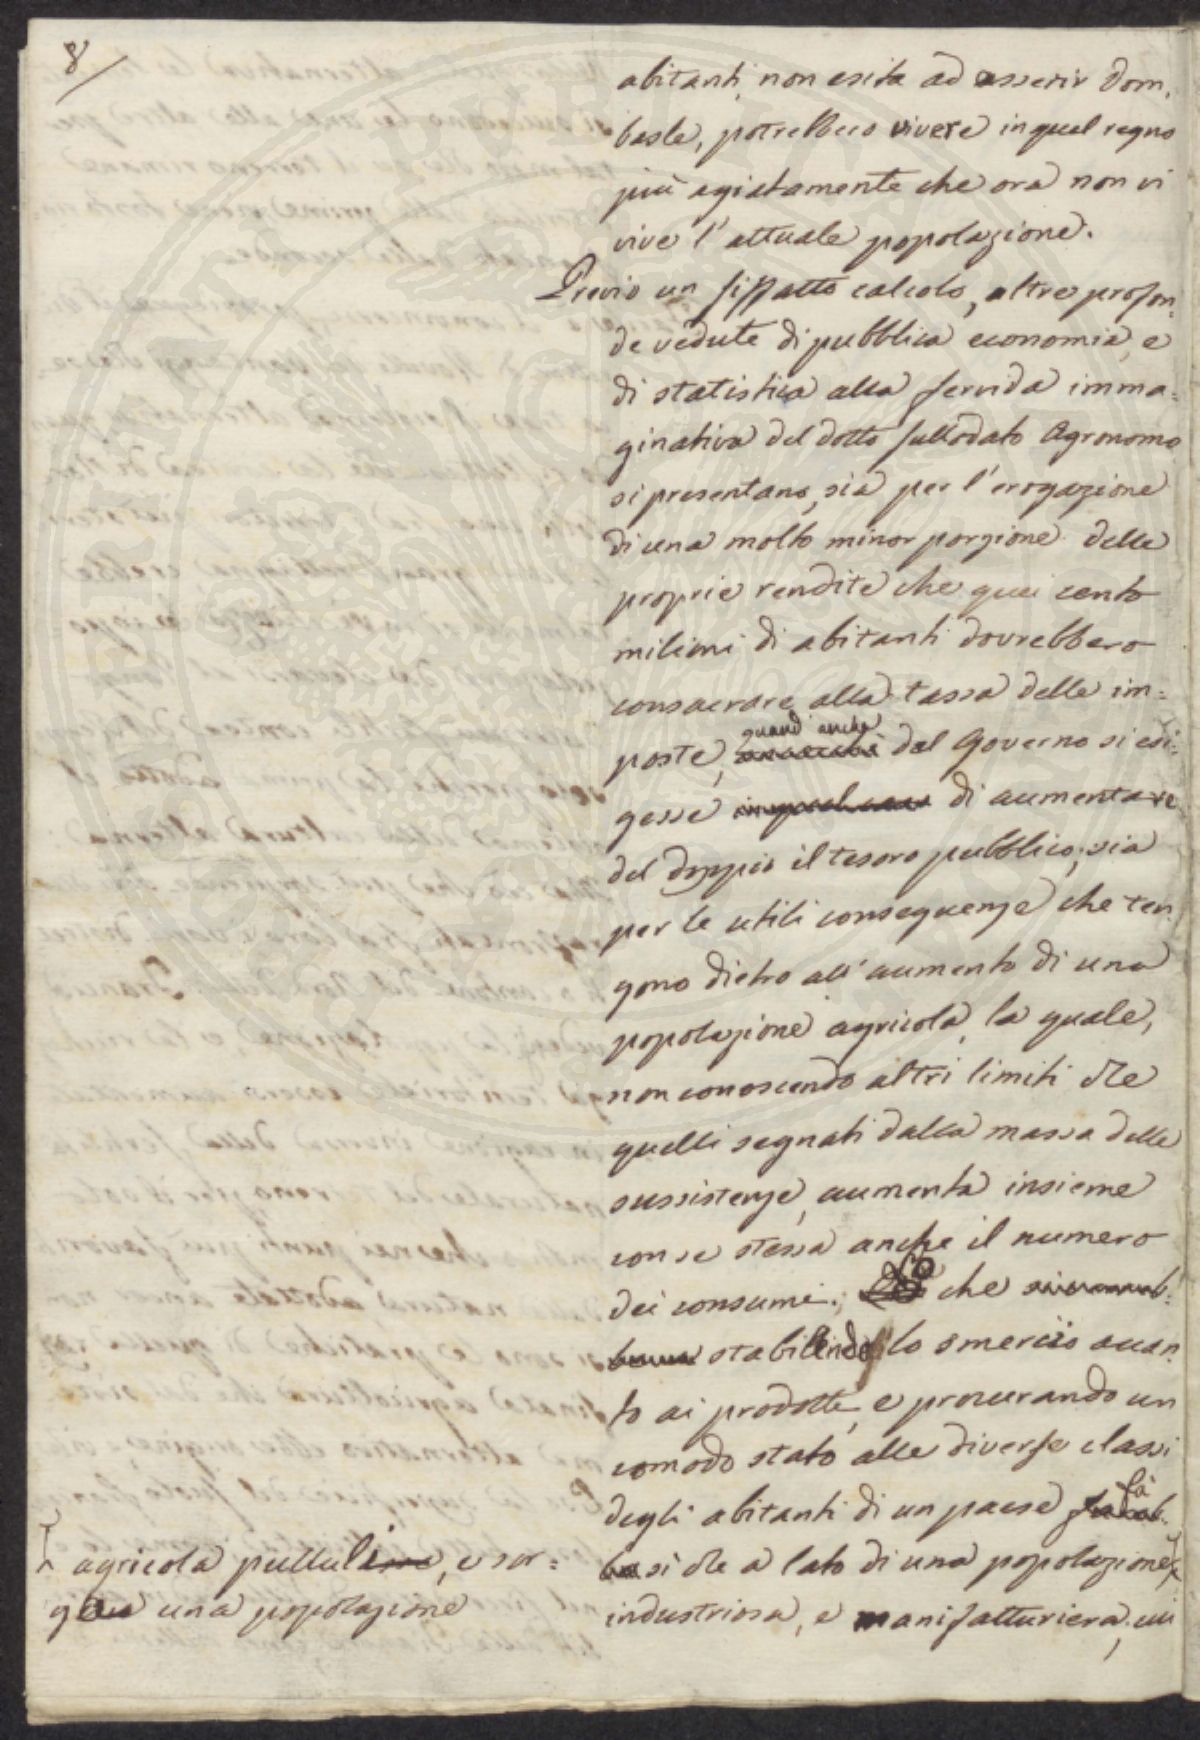 8/
abitanti, non esita ad asserir Dom,
basle, potrebbero vivere in quel regno
più agiatamente che ora non vi
vive l'attuale popolazione.
Previo un siffatto calcolo, altre profon,
de vedute di pubblica economia, e
di statistica alla fervida imma=
ginativa del dotto sullodato Agronomo
si presentano, sia per l'erogazione
di una molto minor porzione delle
proprie rendite che quei cento
milioni di abitanti dovrebbero
consacrare alla tassa delle im=
quand' anche
poste, dal Governo si esi=
gesse in quel caso di aumentare
del doppio il tesoro pubblico; sia
per le utili conseguenze che ten,
gono dietro all'aumento di una
popolazione agricola, la quale,
non conoscendo altri limiti che
quelli segnati dalla massa delle
sussistenze, aumenta insieme
con se stessa anche il numero
dei consumi.; che
stabilendo lo smercio avan,
to ai prodotti, e procurando un
comodo stato alle diverse classi
fà
degli abitanti di un paese
si che a lato di una popolazione
industriosa, e manifatturiera, vi
agricola pulluli, e sor=
ga una popolazione